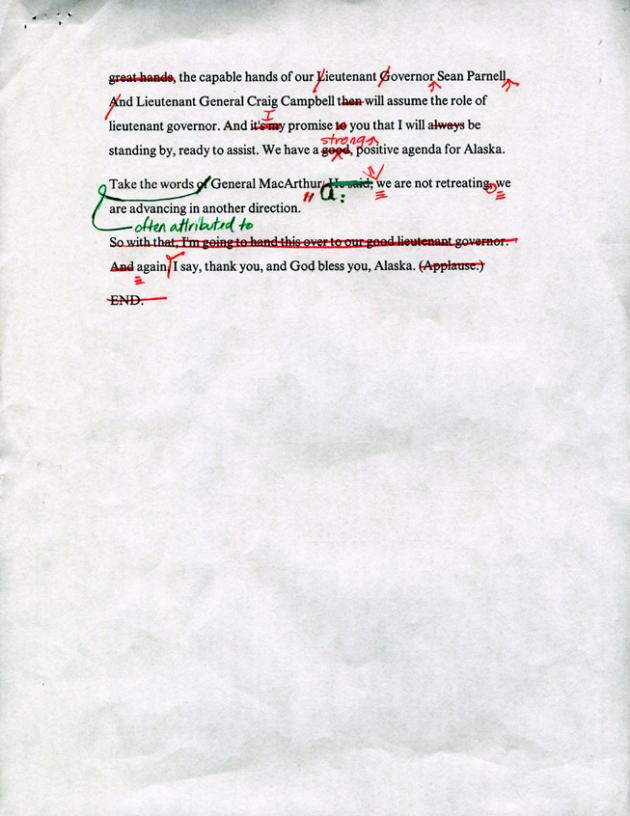 great hands, the capable hands of our Lieutenant Governor Sean Parnell,
And Lieutenant General Craig Campbell then will assume the role of
I
lieutenant governor. And it's my promise to you that I will always be
strong,
standing by, ready to assist. We have a good, positive agenda for Alaska.
Take the words of General MacArthur. He said, we are not retreating, we
are advancing in another direction.
often attributed to
So with that, I'm going to hand this over to our good lieutenant governor.
And again, I say, thank you, and God bless you, Alaska. (Applause.)
END.